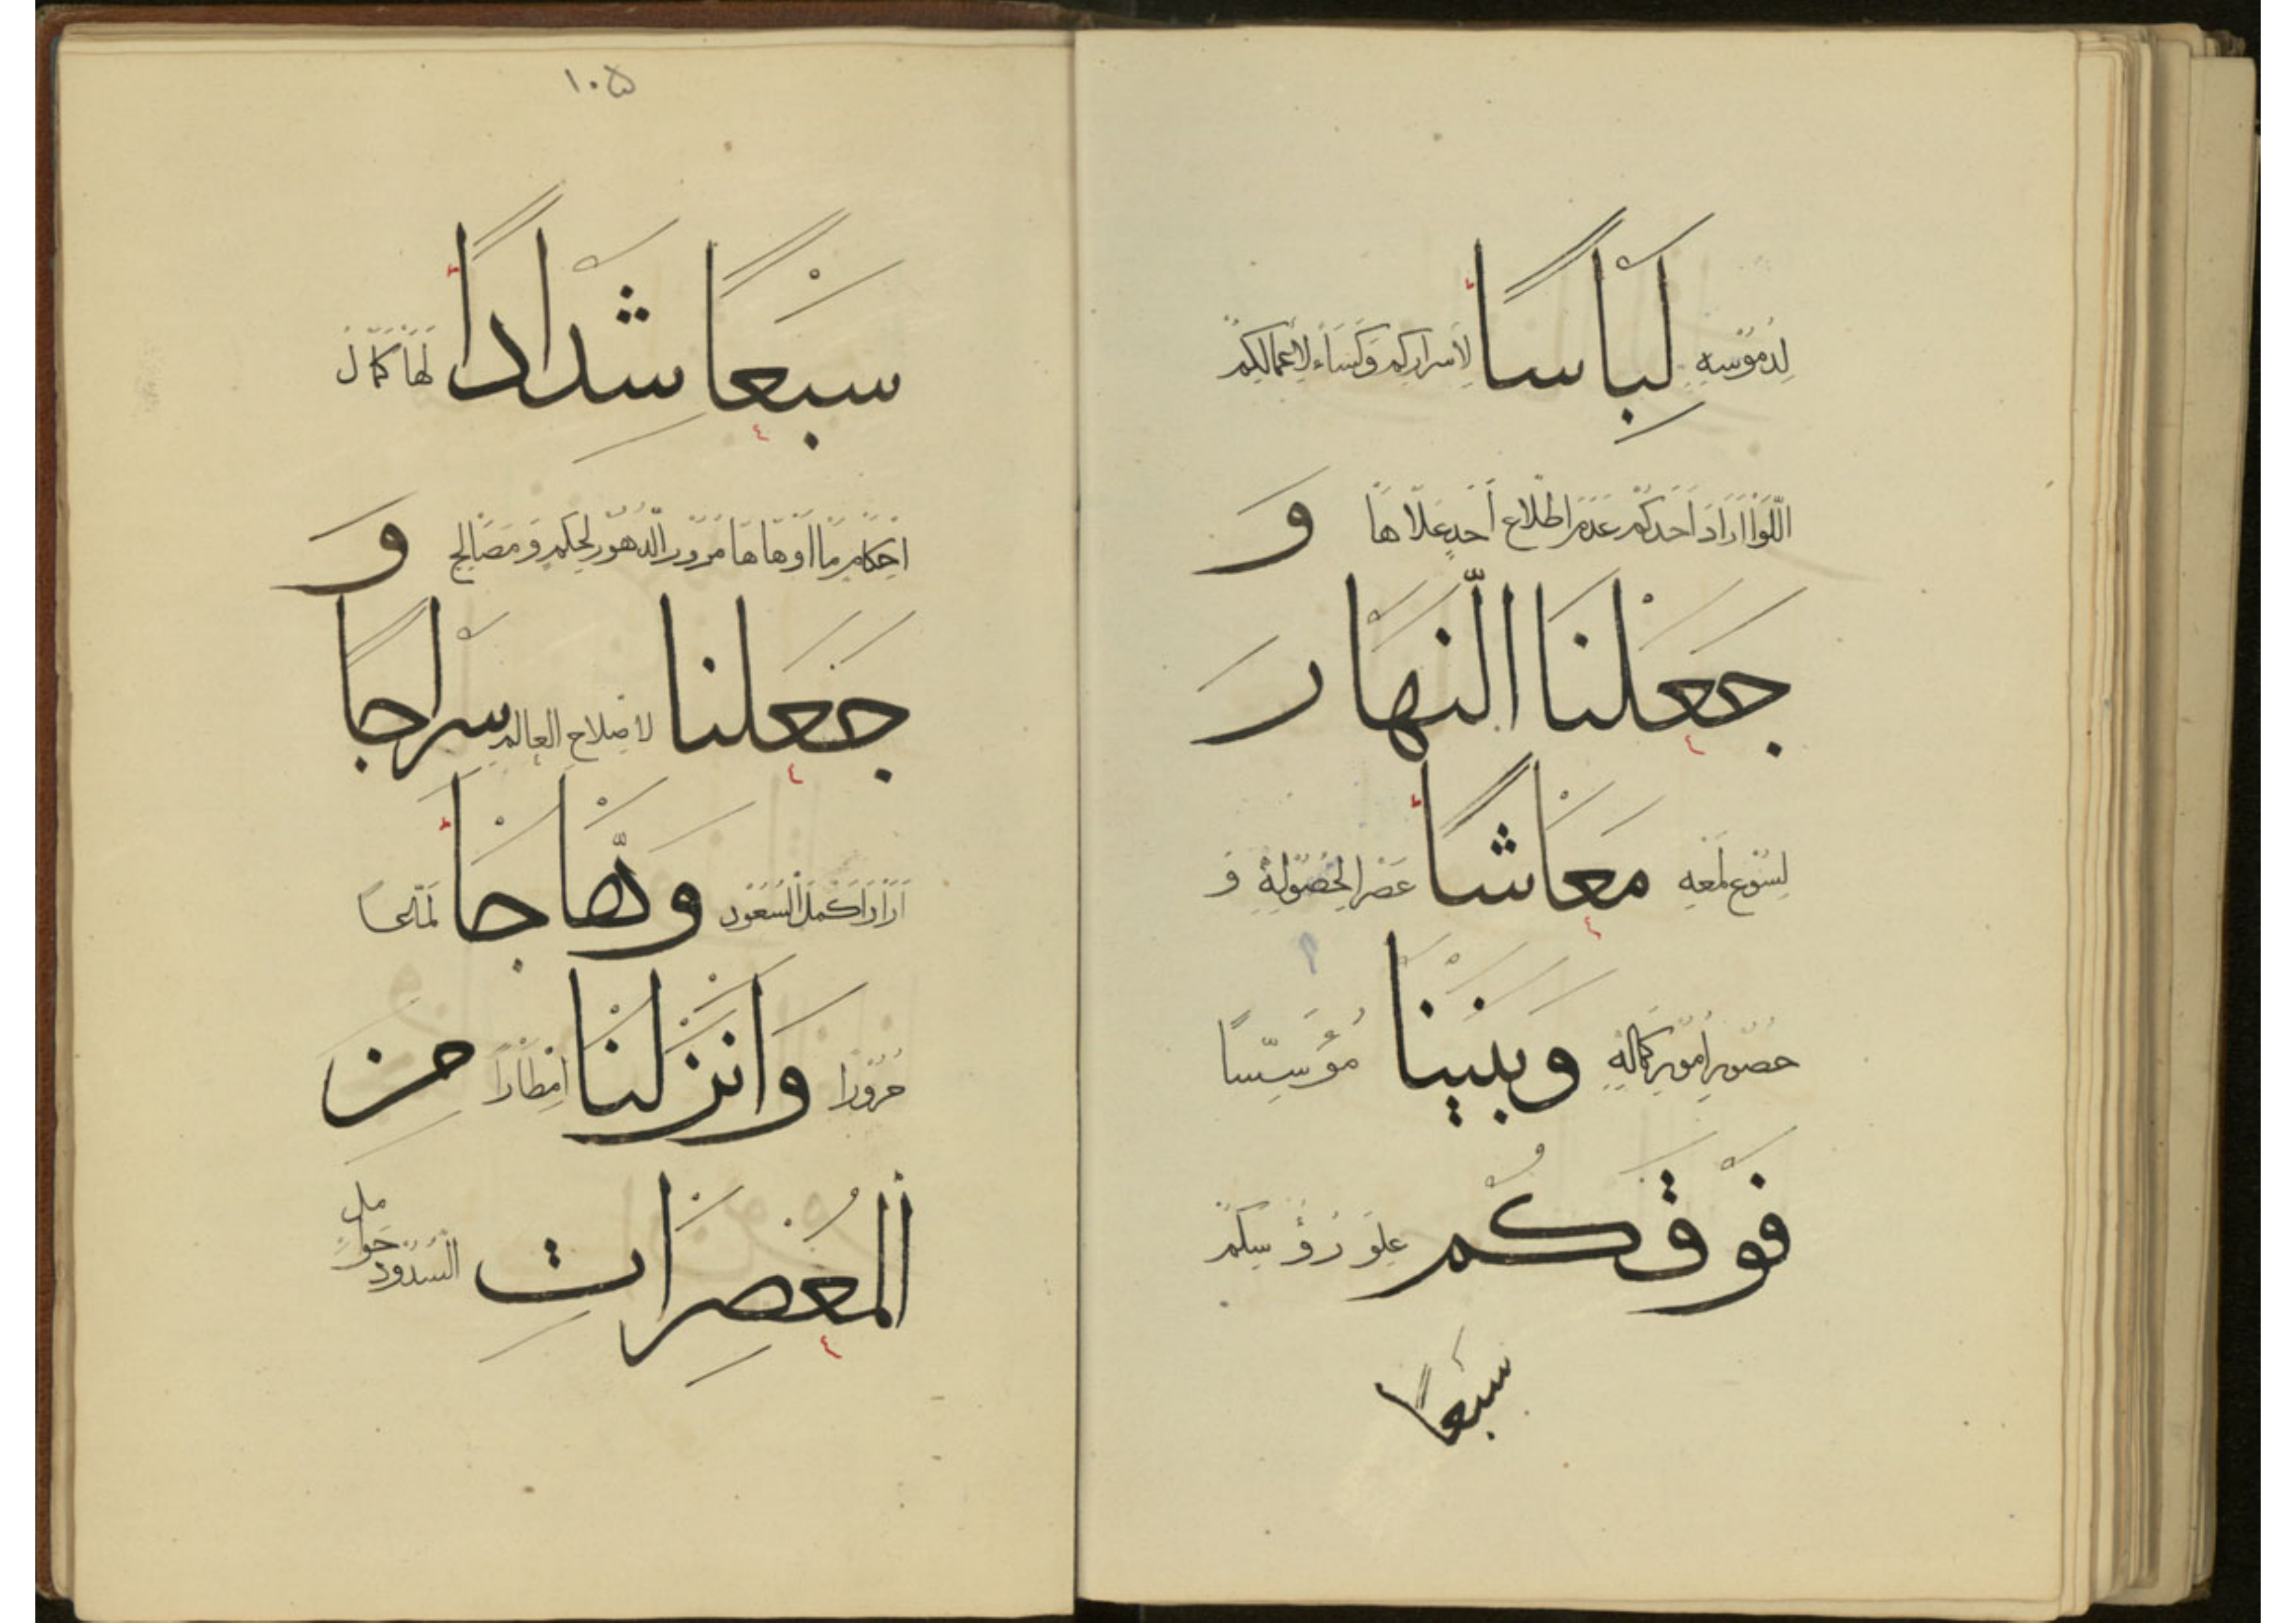 لِدُمُوسِهِ لِبَاسًا لِأَسْرَارِكُمْ وَكِسَاءً لِأَعْمَالِكُمْ
اللَّوَا أَرَادَ أَحَدُكُمْ عَدَمَ اطِّلَاعِ أَحَدٍ عَلَاهَا وَ
جَعَلْنَا النَّهَارَ
لِسُوعِ لَمْعِهِ مَعَاشًا عَصْرَ الْحُصُولِهِ وَ
حُصُورِ أُمُورِ كَمَالِهِ وَبَنَيْنَا مُؤَسِّسًا
فَوْقَكُمْ عِلْوَ رُؤُسِكُمْ
سَبْعًا
١٠٥
سَبْعًا شِدَادًا لَهَا كَمَالُ
إِحْكَامٍ مَا أَوْهَاهَا مُرُورُ الدُّهُورِ لِحِكَمٍ وَمَصَالِحَ وَ
جَعَلْنَا لِإِصْلَاحِ الْعَالَمِ سِرَاجًا
وَهَّاجًا لَمَّاعًا
وَأَنْزَلْنَا أَمْطَارًا مِنَ
الْمُعْصِرَاتِ السُّدُودِ حَوَامِلِ